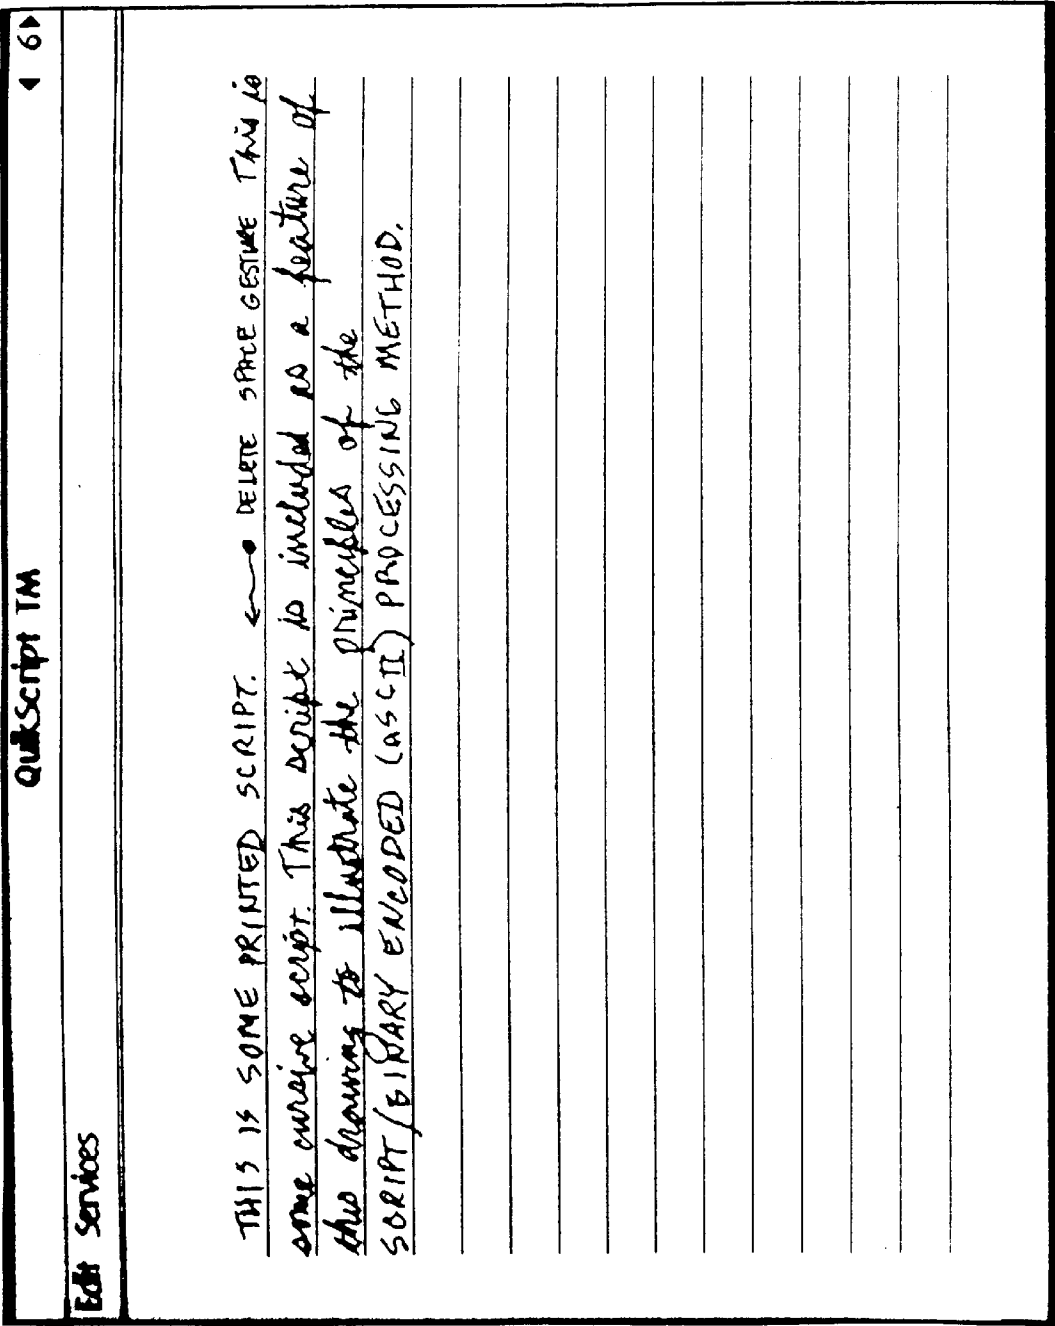 QuikScript TM
◀ 6▶
Edit Services
THIS IS SOME PRINTED SCRIPT. ←● DELETE SPACE GESTURE This is
some cursive script. This script is included as a feature of
this drawing to illustrate the principles of the
SCRIPT/BINARY ENCODED (ASCII) PROCESSING METHOD.